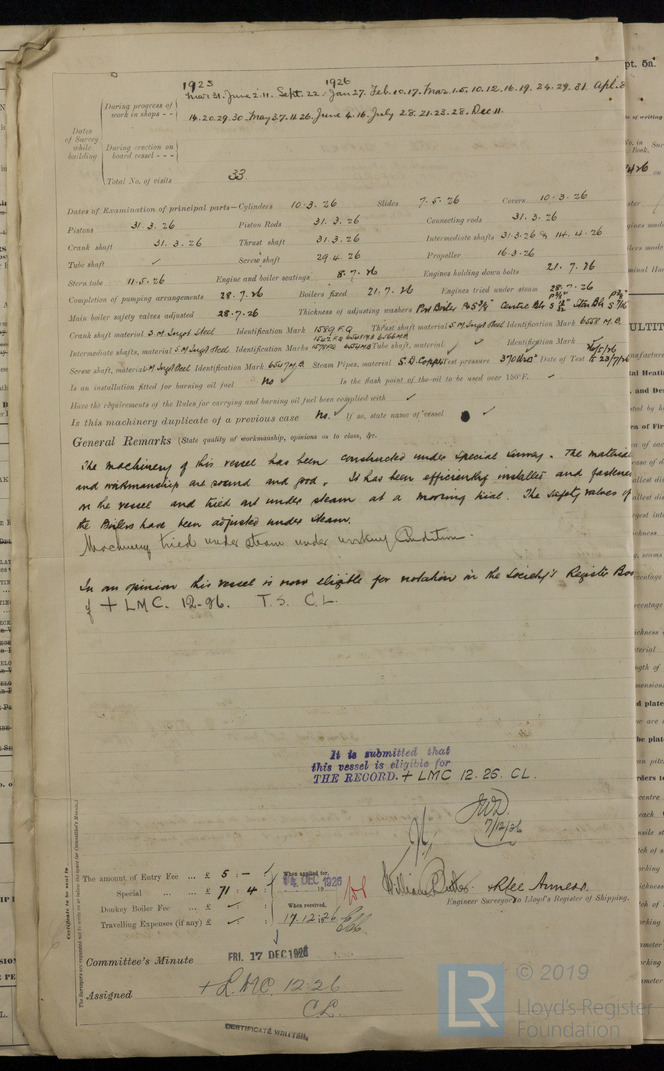 1925 1926
Dates of Survey while building
During progress of work in shops - - Mar 31. June 2.11. Sept. 22. Jan 27. Feb. 10.17. Mar. 1.5.10.12.16.19.24.29.31. Apl. 8
14.20.29.30. May 3.7.11.26. June 4.16. July 2.8.21.23.28. Dec 11.
During erection on board vessel - - -
Total No. of visits 33.
Dates of Examination of principal parts—Cylinders 10.3.26 Slides 7.5.26 Covers 10.3.26
Pistons 31.3.26 Piston Rods 31.3.26 Connecting rods 31.3.26
Crank shaft 31.3.26 Thrust shaft 31.3.26 Intermediate shafts 31.3.26 & 14.4.26
Tube shaft ✓ Screw shaft 29.4.26 Propeller 16.3.26
Stern tube 11.5.26 Engine and boiler seatings 8.7.26 Engines holding down bolts 21.7.26
Completion of pumping arrangements 28.7.26 Boilers fixed 21.7.26 Engines tried under steam 28.7.26
Main boiler safety valves adjusted 28.7.26 Thickness of adjusting washers Port Boiler Centre Blr Star Blr
Crank shaft material S.M. Ingot Steel Identification Mark 1589 F.Q Thrust shaft material S.M. Ingot Steel Identification Mark 6558 M.B.
Intermediate shafts, material S.M. Ingot Steel Identification Marks Tube shaft, material ✓ Identification Mark ✓
Screw shaft, material M Ingot Steel Identification Mark 6547 M.B. Steam Pipes, material S.D. Copper Test pressure 370 lbs □" Date of Test
Is an installation fitted for burning oil fuel No ✓ Is the flash point of the oil to be used over 150°F. ✓
Have the requirements of the Rules for carrying and burning oil fuel been complied with ✓
Is this machinery duplicate of a previous case No. ✓ If so, state name of vessel ✓
General Remarks (State quality of workmanship, opinions as to class, &c.
The machinery of this vessel has been constructed under Special Survey. The material
and workmanship are sound and good. It has been efficiently installed and fastened
on the vessel and tried out under steam at a mooring trial. The safety valves of
the Boilers have been adjusted under steam.
Machinery tried under steam under working Condition.
In our opinion this vessel is now eligible for notation in the Society's Register Boo
of + LMC. 12-26. T.S. C.L.
It is submitted that
this vessel is eligible for
THE RECORD. + LMC 12.26. CL.
7/12/26
Certificate to be sent to
The Surveyors are requested not to write on or below the space for Committee's Minute.
The amount of Entry Fee ... £ 5 : — : When applied for,
Special ... ... £ 71 : 4 : DEC 1926
Donkey Boiler Fee ... £ ✓ : When received,
Travelling Expenses (if any) £ ✓ : 17.12.26
Engineer Surveyor to Lloyd's Register of Shipping.
Committee's Minute FRI. 17 DEC 1926
Assigned + L.M.C. 12.26
C.L.
CERTIFICATE WRITTEN.
LR © 2019
Lloyd's Register
Foundation